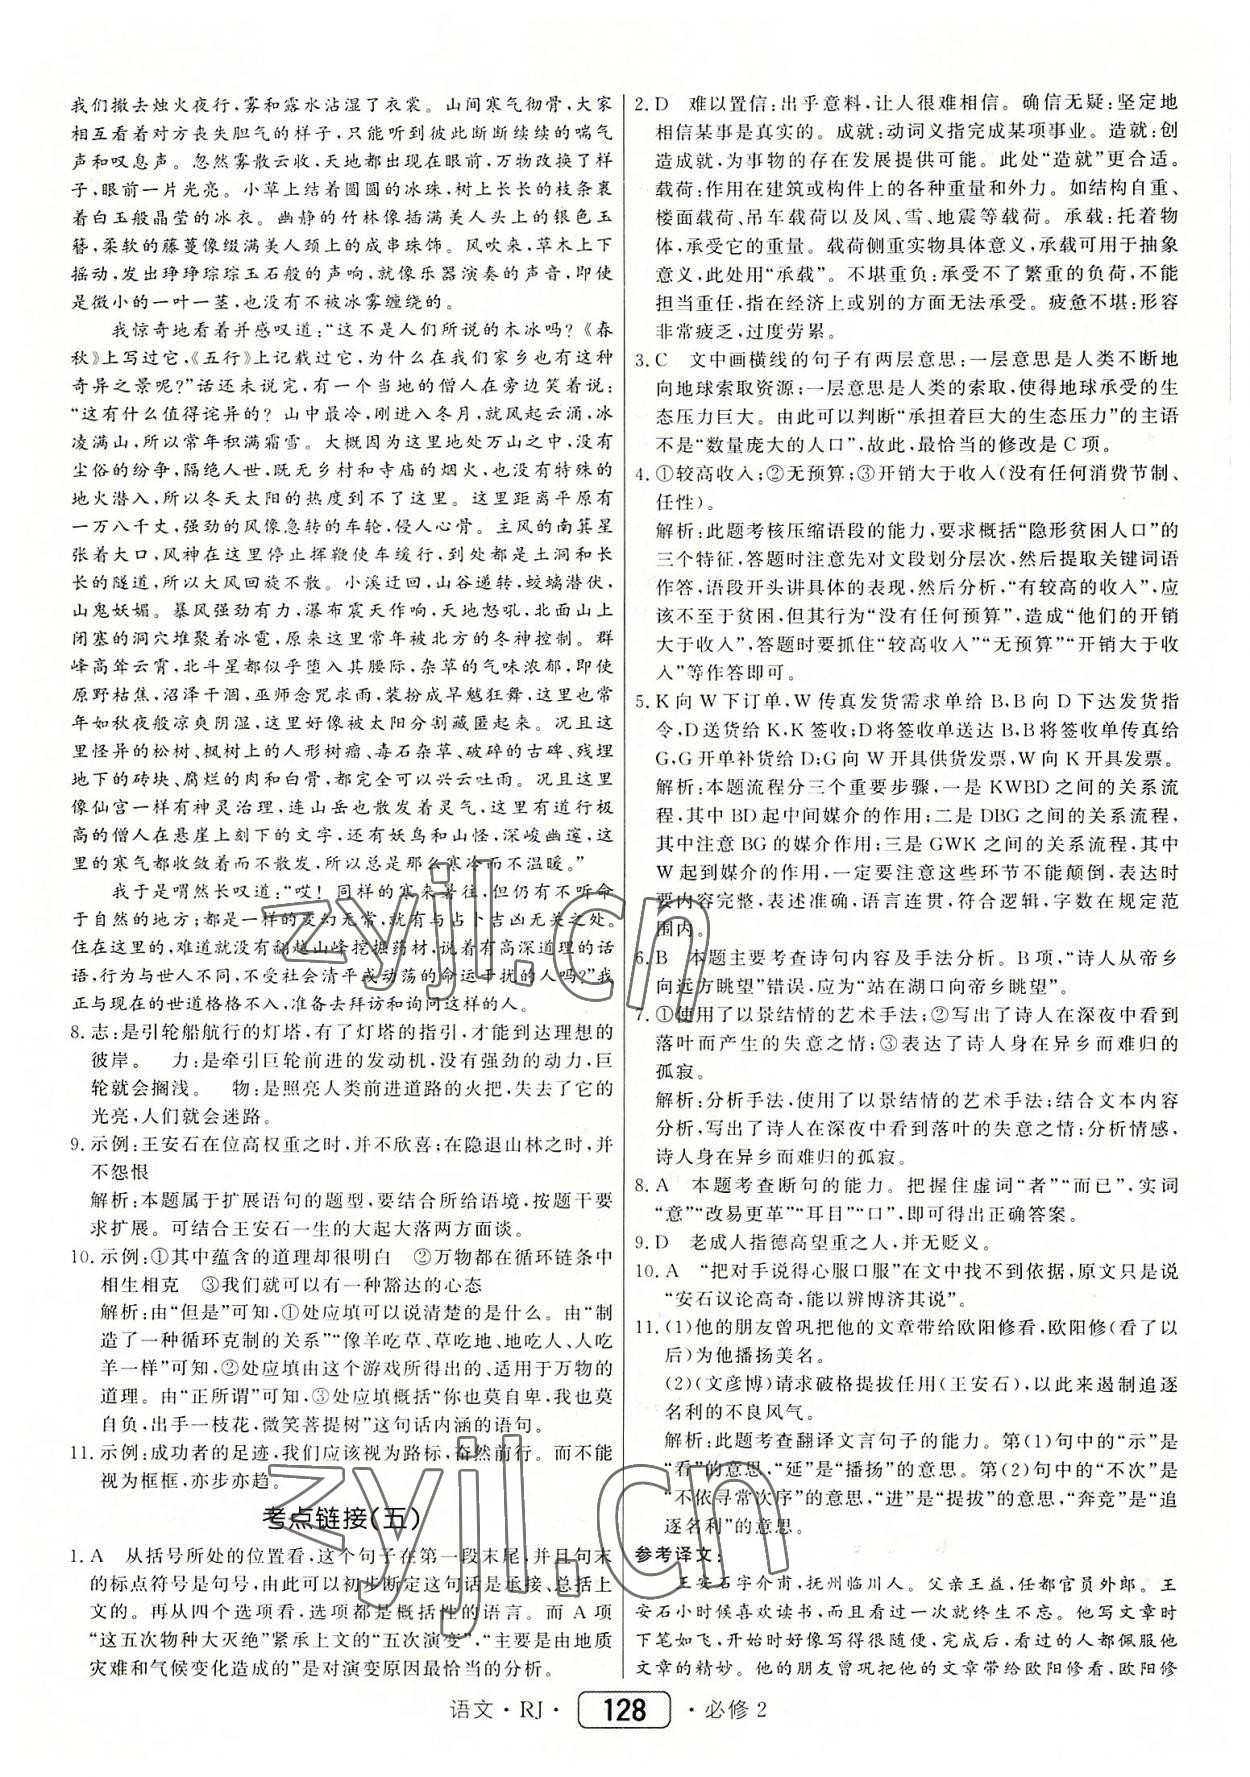 我们撤去烛火夜行,雾和露水沾湿了衣裳。山间寒气彻骨,大家
相互看着对方丧失胆气的样子,只能听到彼此断断续续的喘气
声和叹息声。忽然雾散云收,天地都出现在眼前,万物改换了样
子,眼前一片光亮。小草上结着圆圆的冰珠,树上长长的枝条裹
着白玉般晶莹的冰衣。幽静的竹林像插满美人头上的银色玉
簪,柔软的藤蔓像缀满美人颈上的成串珠饰。风吹来,草木上下
摇动,发出琤琤琮琮玉石般的声响,就像乐器演奏的声音,即使
是微小的一叶一茎,也没有不被冰雾缠绕的。
我惊奇地看着并感叹道:“这不是人们所说的木冰吗?《春
秋》上写过它,《五行》上记载过它,为什么在我们家乡也有这种
奇异之景呢?”话还未说完,有一个当地的僧人在旁边笑着说:
“这有什么值得诧异的?山中最冷,刚进入冬月,就风起云涌,冰
凌满山,所以常年积满霜雪。大概因为这里地处万山之中,没有
尘俗的纷争,隔绝人世,既无乡村和寺庙的烟火,也没有特殊的
地火潜入,所以冬天太阳的热度到不了这里。这里距离平原有
一万八千丈,强劲的风像急转的车轮,侵人心骨。主风的南箕星
张着大口,风神在这里停止挥鞭使车缓行,到处都是土洞和长
长的隧道,所以大风回旋不散。小溪迂回,山谷逆转,蛟螭潜伏,
山鬼妖媚。暴风强劲有力,瀑布震天作响,天地怒吼,北面山上
闭塞的洞穴堆聚着冰雹,原来这里常年被北方的冬神控制。群
峰高耸云霄,北斗星都似乎堕入其腰际,杂草的气味浓郁,即使
原野枯焦,沼泽干涸,巫师念咒求雨,装扮成旱魃狂舞,这里也常
年如秋夜般凉爽阴湿,这里好像被太阳分割藏匿起来。况且这
里怪异的松树、枫树上的人形树瘤、毒石杂草、破碎的古碑、残埋
地下的砖块、腐烂的肉和白骨,都完全可以兴云吐雨。况且这里
像仙宫一样有神灵治理,连山岳也散发着灵气,这里有道行极
高的僧人在悬崖上刻下的文字,还有妖鸟和山怪,深峻幽邃,这
里的寒气都收敛着而不散发,所以总是那么寒冷而不温暖。”
我于是喟然长叹道:“哎!同样的寒来暑往,但仍有不听命
于自然的地方;都是一样的变幻无常,却有与占卜吉凶无关之处。
住在这里的,难道就没有翻越山峰挖掘药材,说着有高深道理的话
语,行为与世人不同,不受社会清平或动荡的命运干扰的人吗?”我
正与现在的世道格格不入,准备去拜访和询问这样的人。
8. 志:是引轮船航行的灯塔,有了灯塔的指引,才能到达理想的
彼岸。 力:是牵引巨轮前进的发动机,没有强劲的动力,巨
轮就会搁浅。 物:是照亮人类前进道路的火把,失去了它的
光亮,人们就会迷路。
9. 示例:王安石在位高权重之时,并不欣喜;在隐退山林之时,并
不怨恨
解析:本题属于扩展语句的题型,要结合所给语境,按题干要
求扩展。可结合王安石一生的大起大落两方面谈。
10. 示例:①其中蕴含的道理却很明白 ②万物都在循环链条中
相生相克 ③我们就可以有一种豁达的心态
解析:由“但是”可知,①处应填可以说清楚的是什么。由“制
造了一种循环克制的关系”“像羊吃草、草吃地、地吃人、人吃
羊一样”可知,②处应填由这个游戏所得出的、适用于万物的
道理。由“正所谓”可知,③处应填概括“你也莫自弃,我也莫
自负,出手一枝花,微笑菩提树”这句话内涵的语句。
11. 示例:成功者的足迹,我们应该视为路标,奋然前行。而不能
视为框框,亦步亦趋。
考点链接(五)
1. A 从括号所处的位置看,这个句子在第一段末尾,并且句末
的标点符号是句号,由此可以初步断定这句话是承接、总括上
文的。再从四个选项看,选项都是概括性的语言。而 A 项
“这五次物种大灭绝”紧承上文的“五次演变”,“主要是由地质
灾难和气候变化造成的”是对演变原因最恰当的分析。
2. D 难以置信:出乎意料,让人很难相信。确信无疑:坚定地
相信某事是真实的。成就:动词义指完成某项事业。造就:创
造成就,为事物的存在发展提供可能。此处“造就”更合适。
载荷:作用在建筑或构件上的各种重量和外力。如结构自重、
楼面载荷、吊车载荷以及风、雪、地震等载荷。承载:托着物
体,承受它的重量。载荷侧重实物具体意义,承载可用于抽象
意义,此处用“承载”。不堪重负:承受不了繁重的负荷,不能
担当重任,指在经济上或别的方面无法承受。疲惫不堪:形容
非常疲乏,过度劳累。
3. C 文中画横线的句子有两层意思:一层意思是人类不断地
向地球索取资源;一层意思是人类的索取,使得地球承受的生
态压力巨大。由此可以判断“承担着巨大的生态压力”的主语
不是“数量庞大的人口”,故此,最恰当的修改是 C 项。
4. ①较高收入;②无预算;③开销大于收入(没有任何消费节制、
任性)。
解析:此题考核压缩语段的能力,要求概括“隐形贫困人口”的
三个特征,答题时注意先对文段划分层次,然后提取关键词语
作答,语段开头讲具体的表现,然后分析,“有较高的收入”,应
该不至于贫困,但其行为“没有任何预算”,造成“他们的开销
大于收入”,答题时要抓住“较高收入”“无预算”“开销大于收
入”等作答即可。
5. K 向 W 下订单,W 传真发货需求单给 B,B 向 D 下达发货指
令,D 送货给 K,K 签收;D 将签收单送达 B,B 将签收单传真给
G,G 开单补货给 D;G 向 W 开具供货发票,W 向 K 开具发票。
解析:本题流程分三个重要步骤,一是 KWBD 之间的关系流
程,其中 BD 起中间媒介的作用;二是 DBG 之间的关系流程,
其中注意 BG 的媒介作用;三是 GWK 之间的关系流程,其中
W 起到媒介的作用,一定要注意这些环节不能颠倒,表达时
要内容完整,表述准确,语言连贯,符合逻辑,字数在规定范
围内。
6. B 本题主要考查诗句内容及手法分析。B 项,“诗人从帝乡
向远方眺望”错误,应为“站在湖口向帝乡眺望”。
7. ①使用了以景结情的艺术手法;②写出了诗人在深夜中看到
落叶而产生的失意之情;③表达了诗人身在异乡而难归的
孤寂。
解析:分析手法,使用了以景结情的艺术手法;结合文本内容
分析,写出了诗人在深夜中看到落叶的失意之情;分析情感,
诗人身在异乡而难归的孤寂。
8. A 本题考查断句的能力。把握住虚词“者”“而已”,实词
“意”“改易更革”“耳目”“口”,即可得出正确答案。
9. D 老成人指德高望重之人,并无贬义。
10. A “把对手说得心服口服”在文中找不到依据,原文只是说
“安石议论高奇,能以辨博济其说”。
11. (1)他的朋友曾巩把他的文章带给欧阳修看,欧阳修(看了以
后)为他播扬美名。
(2)(文彦博)请求破格提拔任用(王安石),以此来遏制追逐
名利的不良风气。
解析:此题考查翻译文言句子的能力。第(1)句中的“示”是
“看”的意思,“延”是“播扬”的意思。第(2)句中的“不次”是
“不依寻常次序”的意思,“进”是“提拔”的意思,“奔竞”是“追
逐名利”的意思。
参考译文:
王安石字介甫,抚州临川人。父亲王益,任都官员外郎。王
安石小时候喜欢读书,而且看过一次就终生不忘。他写文章时
下笔如飞,开始时好像写得很随便,完成后,看过的人都佩服他
文章的精妙。他的朋友曾巩把他的文章带给欧阳修看,欧阳修
语文·RJ· 128 ·必修2
zyjl.cn
zyjl.cn